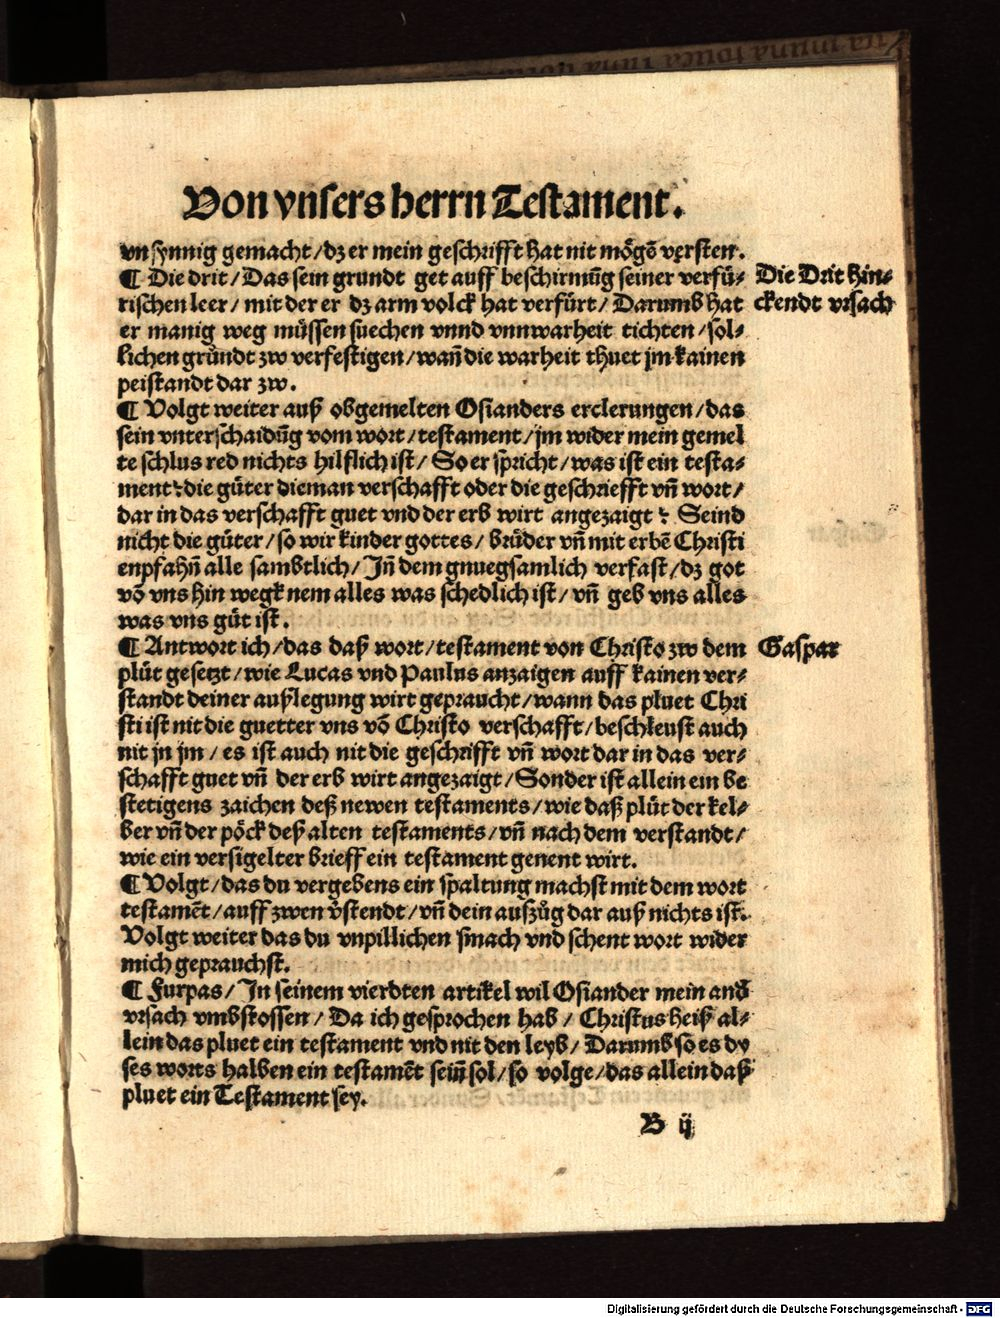 Von vnsers herrn Testament.
vnsynnig gemacht / dz er mein geschrifft hat nit mögē versten.
¶ Die drit / Das sein grundt get auff beschirmūg seiner verfü⸗
rischen leer / mit der er dz arm volck hat verfürt / Darumb hat
er manig weg müssen suechen vnnd vnnwarheit tichten / sol⸗
lichen gründt zw verfestigen / wañ die warheit thuet jm kainen
peistandt dar zw.
Die Drit hin⸗
ckendt vrsach
¶ Volgt weiter auß obgemelten Osianders erclerungen / das
sein vnterschaidūg vom wort / testament / jm wider mein gemel
te schlus red nichts hilflich ist / So er spricht / was ist ein testa⸗
ment? die güter die man verschafft oder die geschriefft vñ wort /
dar in das verschafft guet vnd der erb wirt angezaigt? Seind
nicht die güter / so wir kinder gottes / brüder vñ mit erbē Christi
enpfahñ alle sambtlich / Jñ dem gnuegsamlich verfast / dz got
vō vns hin wegk nem alles was schedlich ist / vñ geb vns alles
was vns güt ist.
¶ Antwort ich / das daß wort / testament von Christo zw dem
plüt gesetzt / wie Lucas vnd Paulus anzaigen auff kainen ver⸗
standt deiner außlegung wirt gepraucht / wann das pluet Chri
sti ist nit die guetter vns vō Christo verschafft / beschleust auch
nit jn jm / es ist auch nit die geschrifft vñ wort dar in das ver⸗
schafft guet vñ der erb wirt angezaigt / Sonder ist allein ein be
stetigens zaichen deß newen testaments / wie daß plüt der kel⸗
ber vñ der pöck deß alten testaments / vñ nach dem verstandt /
wie ein versigelter brieff ein testament genent wirt.
Gaspar
¶ Volgt / das du vergebens ein spaltung machst mit dem wort
testamēt / auff zwen v̄stendt / vñ dein auszůg dar auß nichts ist.
Volgt weiter das du vnpillichen smach vnd schent wort wider
mich geprauchst.
¶ Furpas / Jn seinem vierdten artikel wil Osiander mein and̄
vrsach vmbstossen / Da ich gesprochen hab / Christus heiß al⸗
lein das pluet ein testament vnd nit den leyb / Darumb so es dy
ses worts halben ein testamēt seiñ sol / so volge / das allein daß
pluet ein Testament sey.
B ij
Digitalisierung gefördert durch die Deutsche Forschungsgemeinschaft - DFG